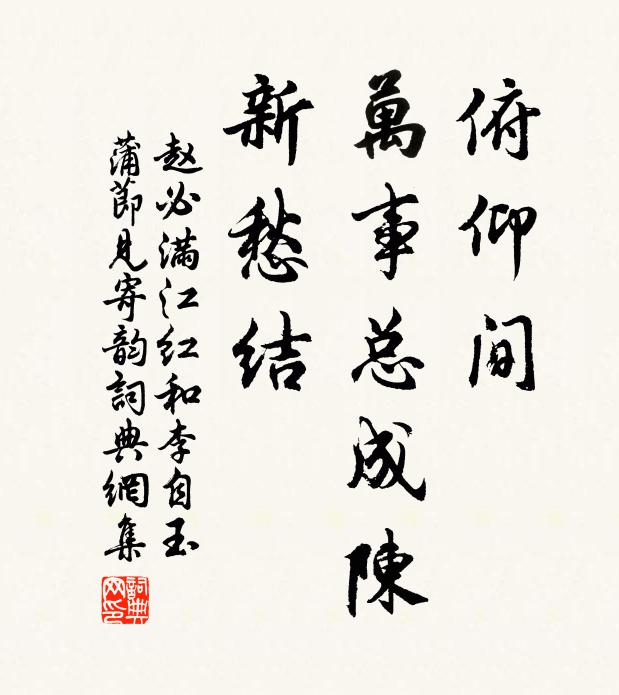 俯仰间
萬事总成陳
新愁结
赵必满江红和李自玉
蒲節見寄韵詞典網集
詞典网印